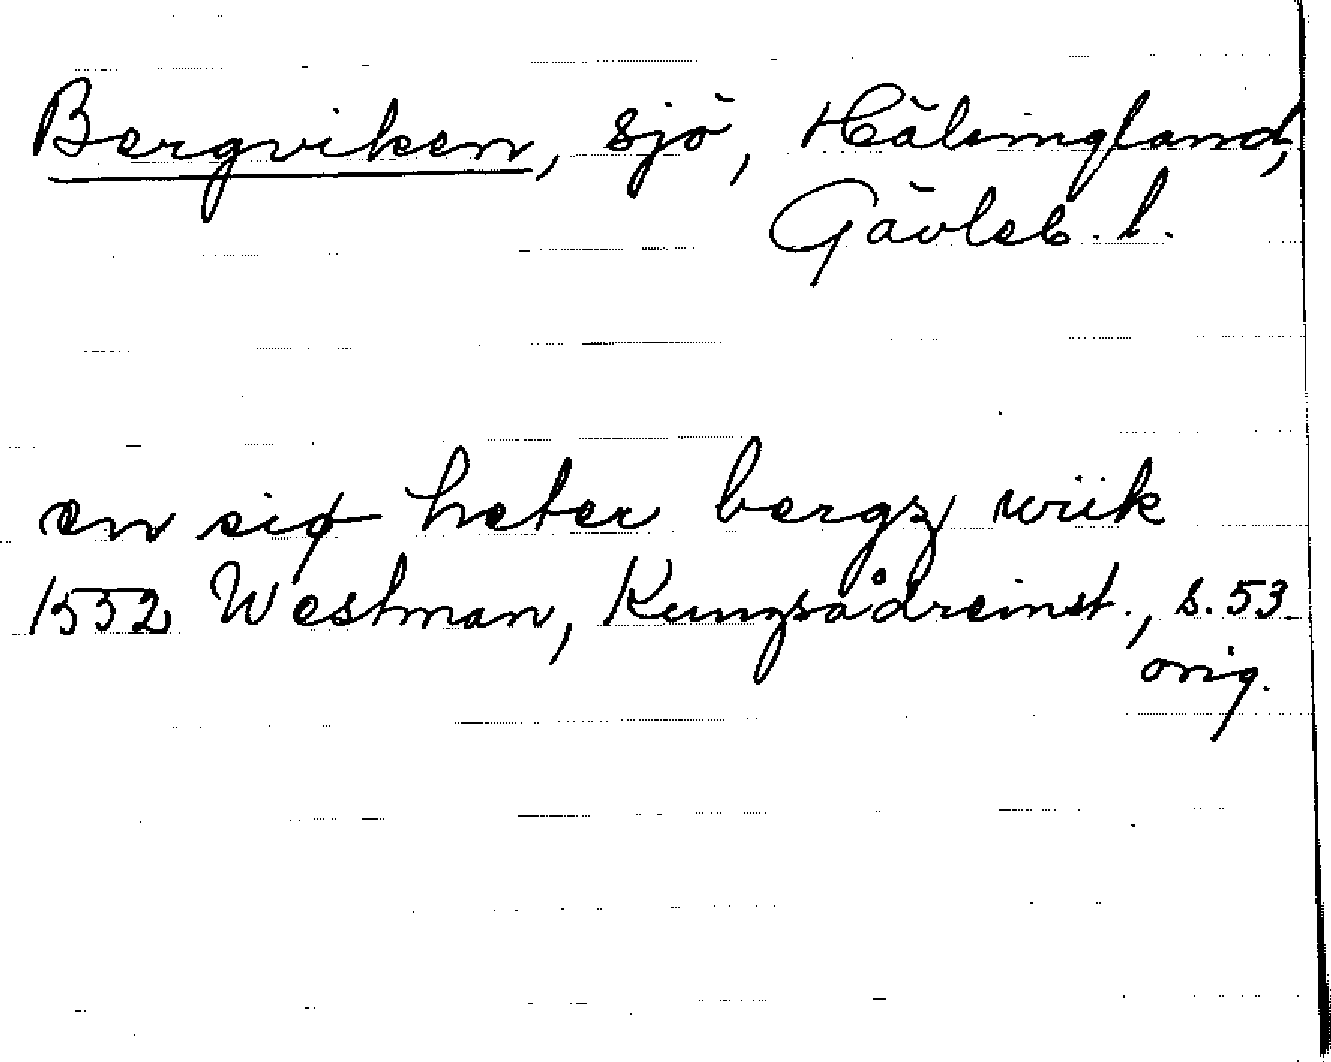 Bergviken, sjö, Hälsingland,
Gävleb. l.
en siø heter bergz wiik
1552 Westman, Kungsådreinst., s. 53
orig.